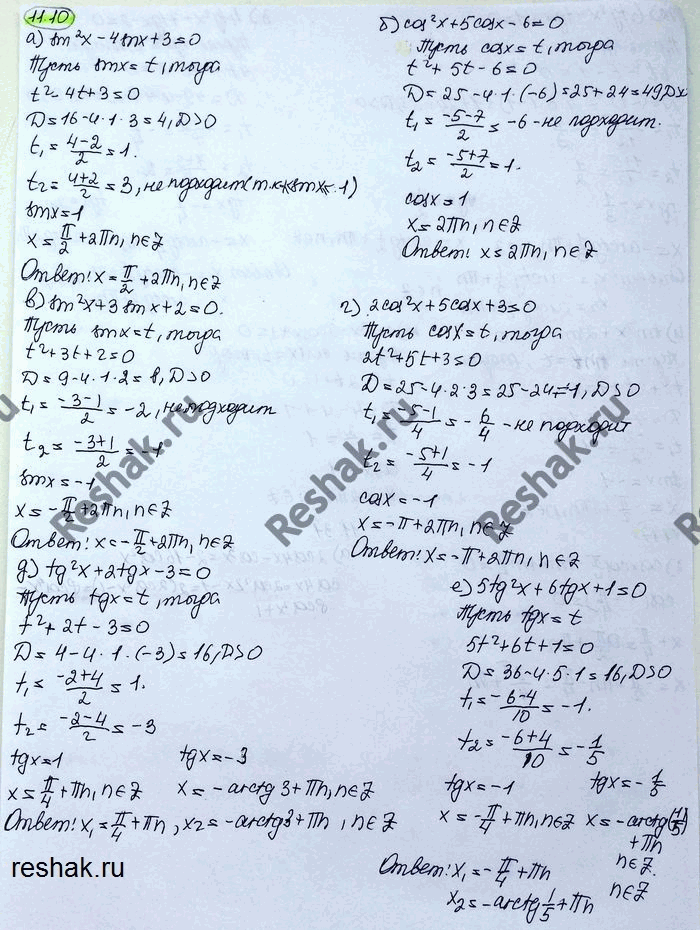 11.10
а) sin²x - 4sinx + 3 = 0
Пусть sinx = t, тогда
t² - 4t + 3 = 0
D = 16 - 4·1·3 = 4, D>0
t₁ = (4-2)/2 = 1.
t₂ = (4+2)/2 = 3, не подходит (т.к. sinx 1)
sinx = 1
x = π/2 + 2πn, n∈Z
Ответ: x = π/2 + 2πn, n∈Z
б) cos²x + 5cosx - 6 = 0
Пусть cosx = t, тогда
t² + 5t - 6 = 0
D = 25 - 4·1·(-6) = 25 + 24 = 49, D>
t₁ = (-5-7)/2 = -6 - не подходит.
t₂ = (-5+7)/2 = 1.
cosx = 1
x = 2πn, n∈Z
Ответ: x = 2πn, n∈Z
в) sin²x + 3sinx + 2 = 0.
Пусть sinx = t, тогда
t² + 3t + 2 = 0
D = 9 - 4·1·2 = 1, D>0
t₁ = (-3-1)/2 = -2, не подходит
t₂ = (-3+1)/2 = -1
sinx = -1
x = -π/2 + 2πn, n∈Z
Ответ: x = -π/2 + 2πn, n∈Z
г) 2cos²x + 5cosx + 3 = 0
Пусть cosx = t, тогда
2t² + 5t + 3 = 0
D = 25 - 4·2·3 = 25 - 24 = 1, D>0
t₁ = (-5-1)/4 = -6/4 - не подходит
t₂ = (-5+1)/4 = -1
cosx = -1
x = -π + 2πn, n∈Z
Ответ: x = -π + 2πn, n∈Z
д) tg²x + 2tgx - 3 = 0
Пусть tgx = t, тогда
t² + 2t - 3 = 0
D = 4 - 4·1·(-3) = 16, D>0
t₁ = (-2+4)/2 = 1.
t₂ = (-2-4)/2 = -3
tgx = 1 tgx = -3
x = π/4 + πn, n∈Z x = -arctg3 + πn, n∈Z
Ответ: x₁ = π/4 + πn, x₂ = -arctg3 + πn, n∈Z
е) 5tg²x + 6tgx + 1 = 0
Пусть tgx = t
5t² + 6t + 1 = 0
D = 36 - 4·5·1 = 16, D>0
t₁ = (-6-4)/10 = -1.
t₂ = (-6+4)/10 = -1/5
tgx = -1 tgx = -1/5
x = -π/4 + πn, n∈Z x = -arctg(1/5)
+ πn
n∈Z.
Ответ: x₁ = -π/4 + πn n∈Z
x₂ = -arctg 1/5 + πn
Reshak.ru
Reshak.ru
Reshak.ru
reshak.ru